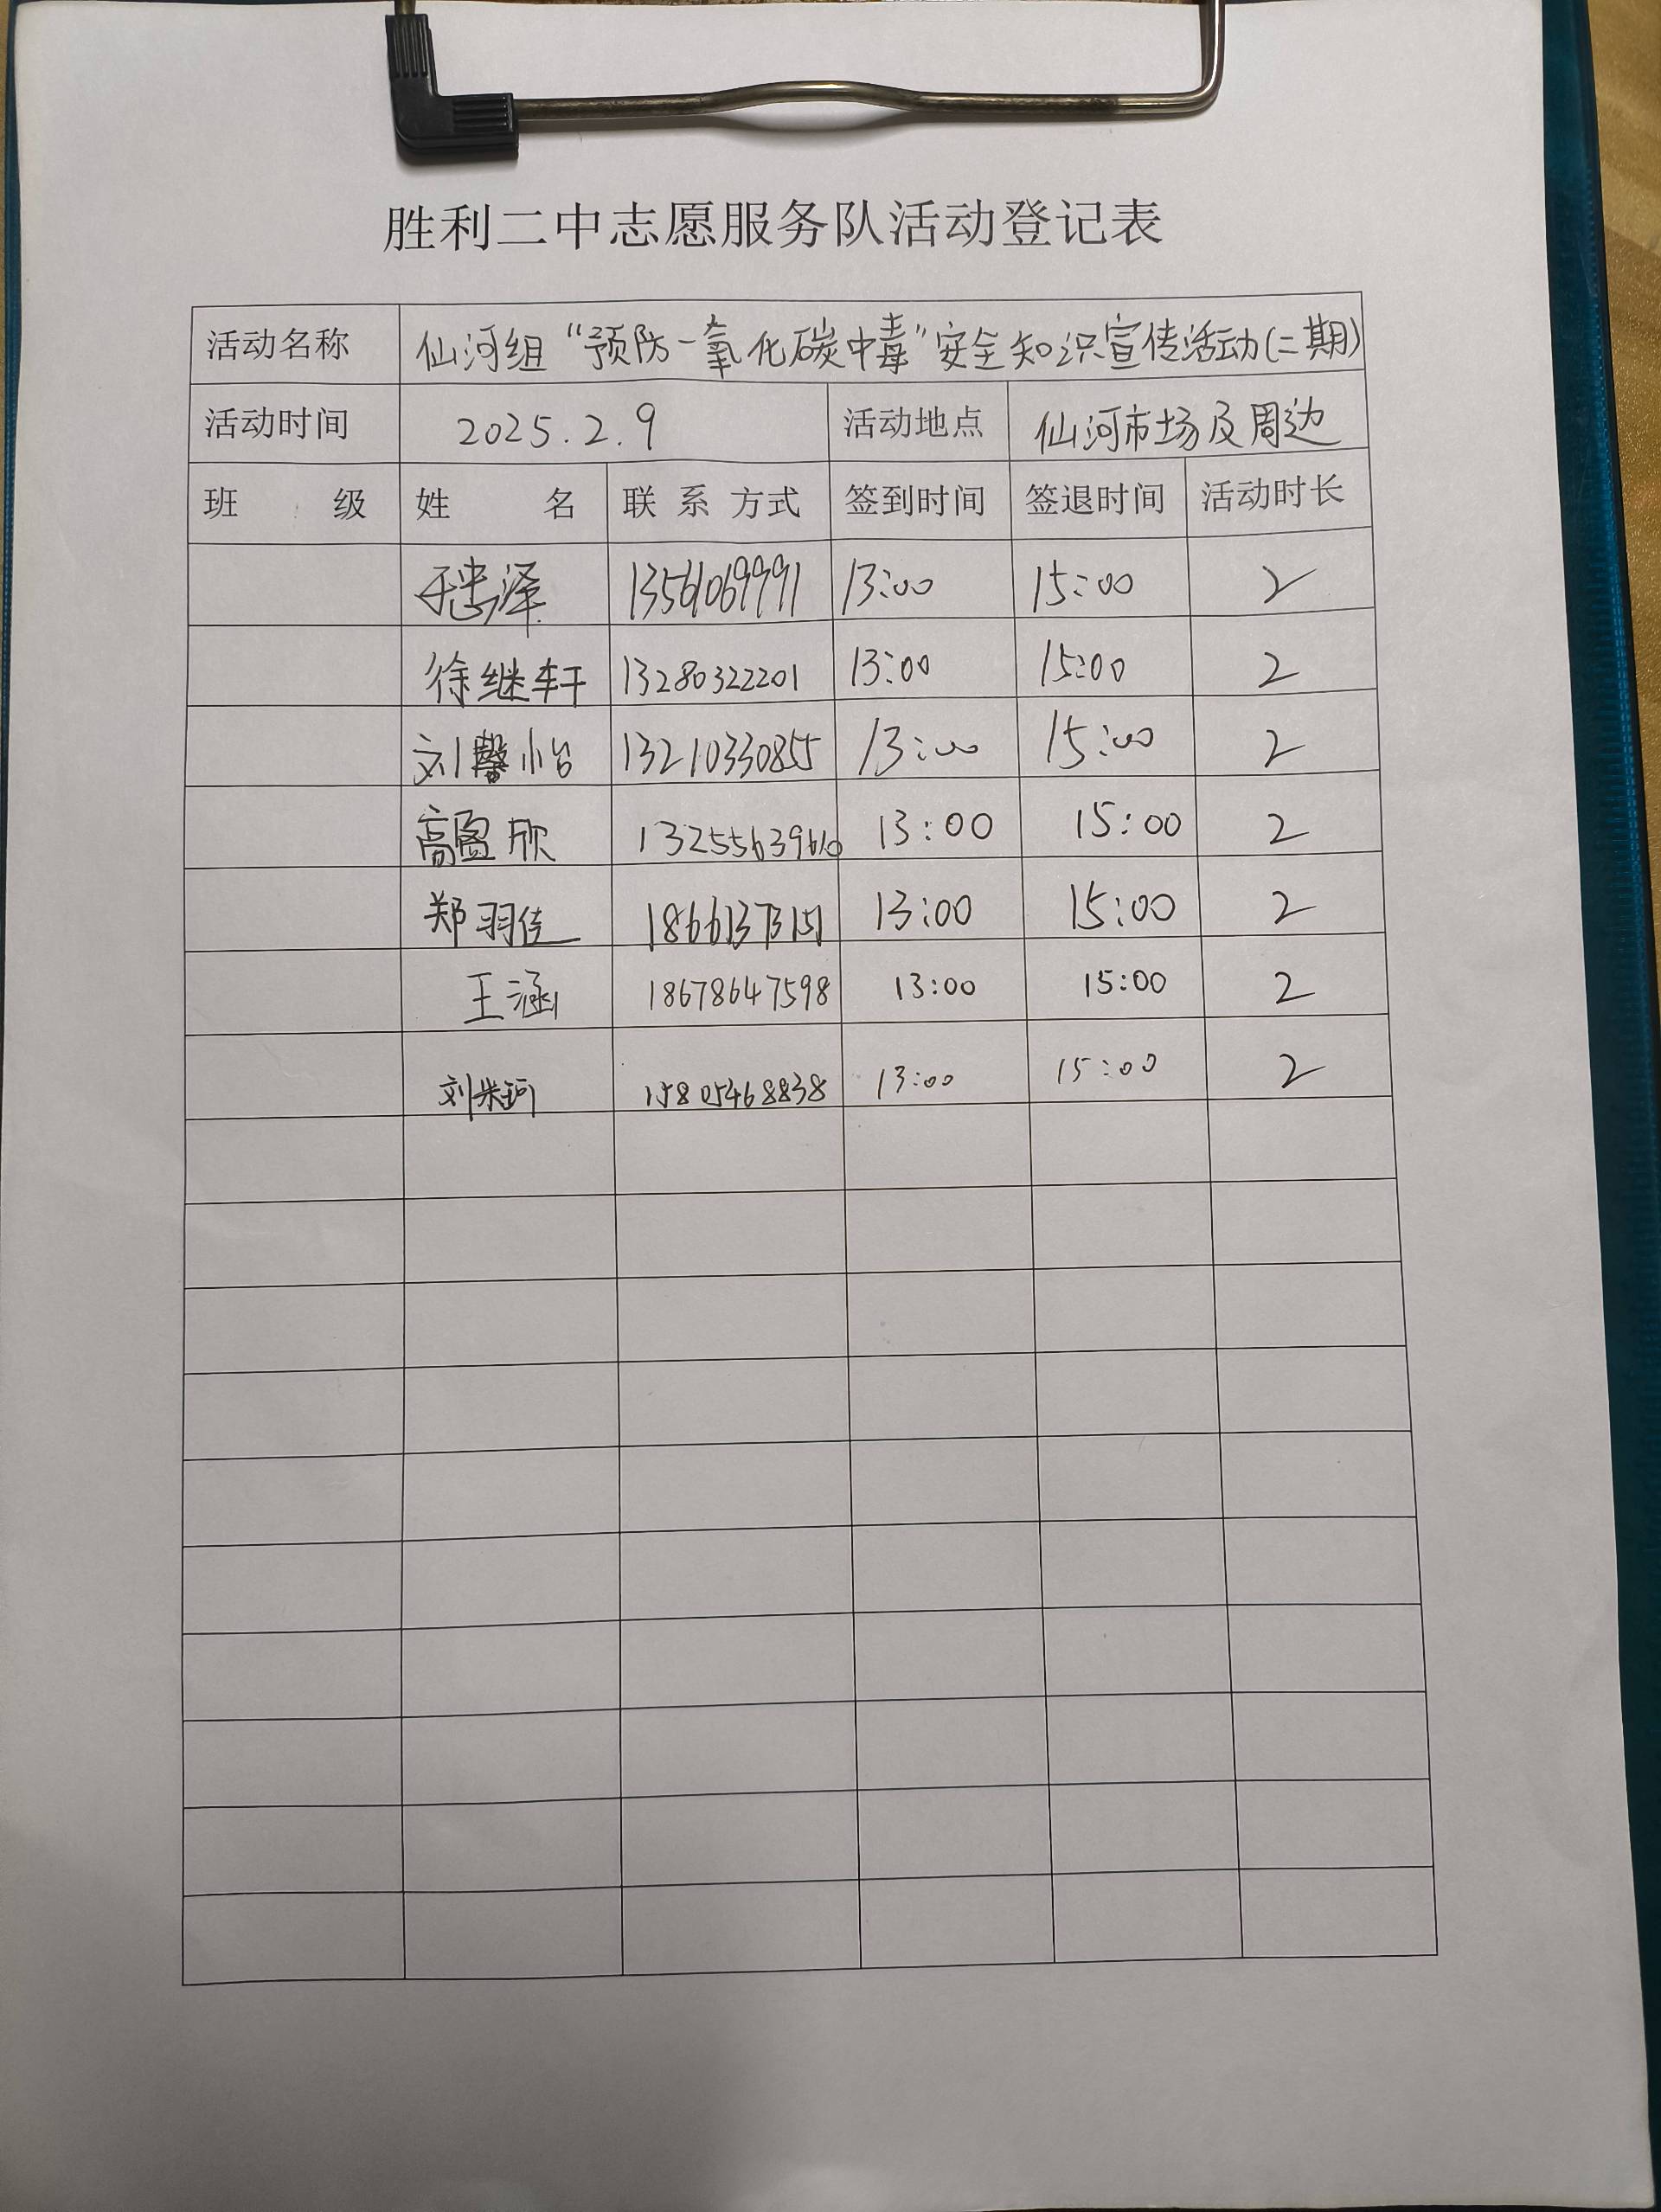 胜利二中志愿服务队活动登记表
活动名称 仙河组“预防一氧化碳中毒”安全知识宣传活动(二期)
活动时间 2025.2.9 活动地点 仙河市场及周边
班 级 姓 名 联系方式 签到时间 签退时间 活动时长
13561069991 13:00 15:00 2
徐继轩 13280322201 13:00 15:00 2
刘馨怡 13210330855 13:00 15:00 2
高盈欣 13:00 15:00 2
郑羽佳 18661373151 13:00 15:00 2
王涵 18678647598 13:00 15:00 2
刘米珂 15805468838 13:00 15:00 2